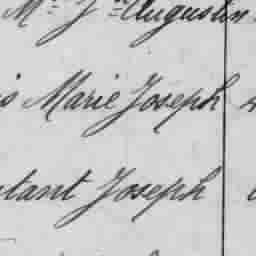 Mr J. Augustin
is Marie Joseph
tant Joseph